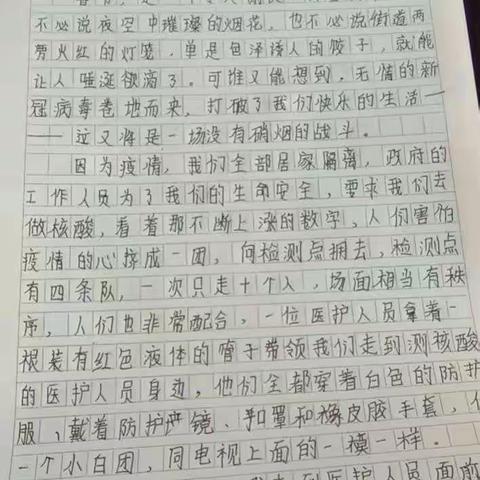 不必说夜空中璀璨的烟花，也不必说街道两
旁火红的灯笼，单是包泽诱人的饺子，就能
让人唾涎欲滴了。可谁又能想到，无情的新
冠病毒卷地而来，打破了我们快乐的生活—
——这又将是一场没有硝烟的战斗。
因为疫情，我们全部居家隔离，政府的
工作人员为了我们的生命安全，要求我们去
做核酸，看着那不断上涨的数字，人们害怕
疫情的心揉成一团，向检测点拥去，检测点
有四条队，一次只走十个人，场面相当有秩
序，人们也非常配合，一位医护人员拿着一
根装有红色液体的管子带领我们走到测核酸
的医护人员身边，他们全都穿着白色的防护
服、戴着防护镜、口罩和橡皮胶手套，
一个小白团，同电视上面的一模一样。
到医护人员面前